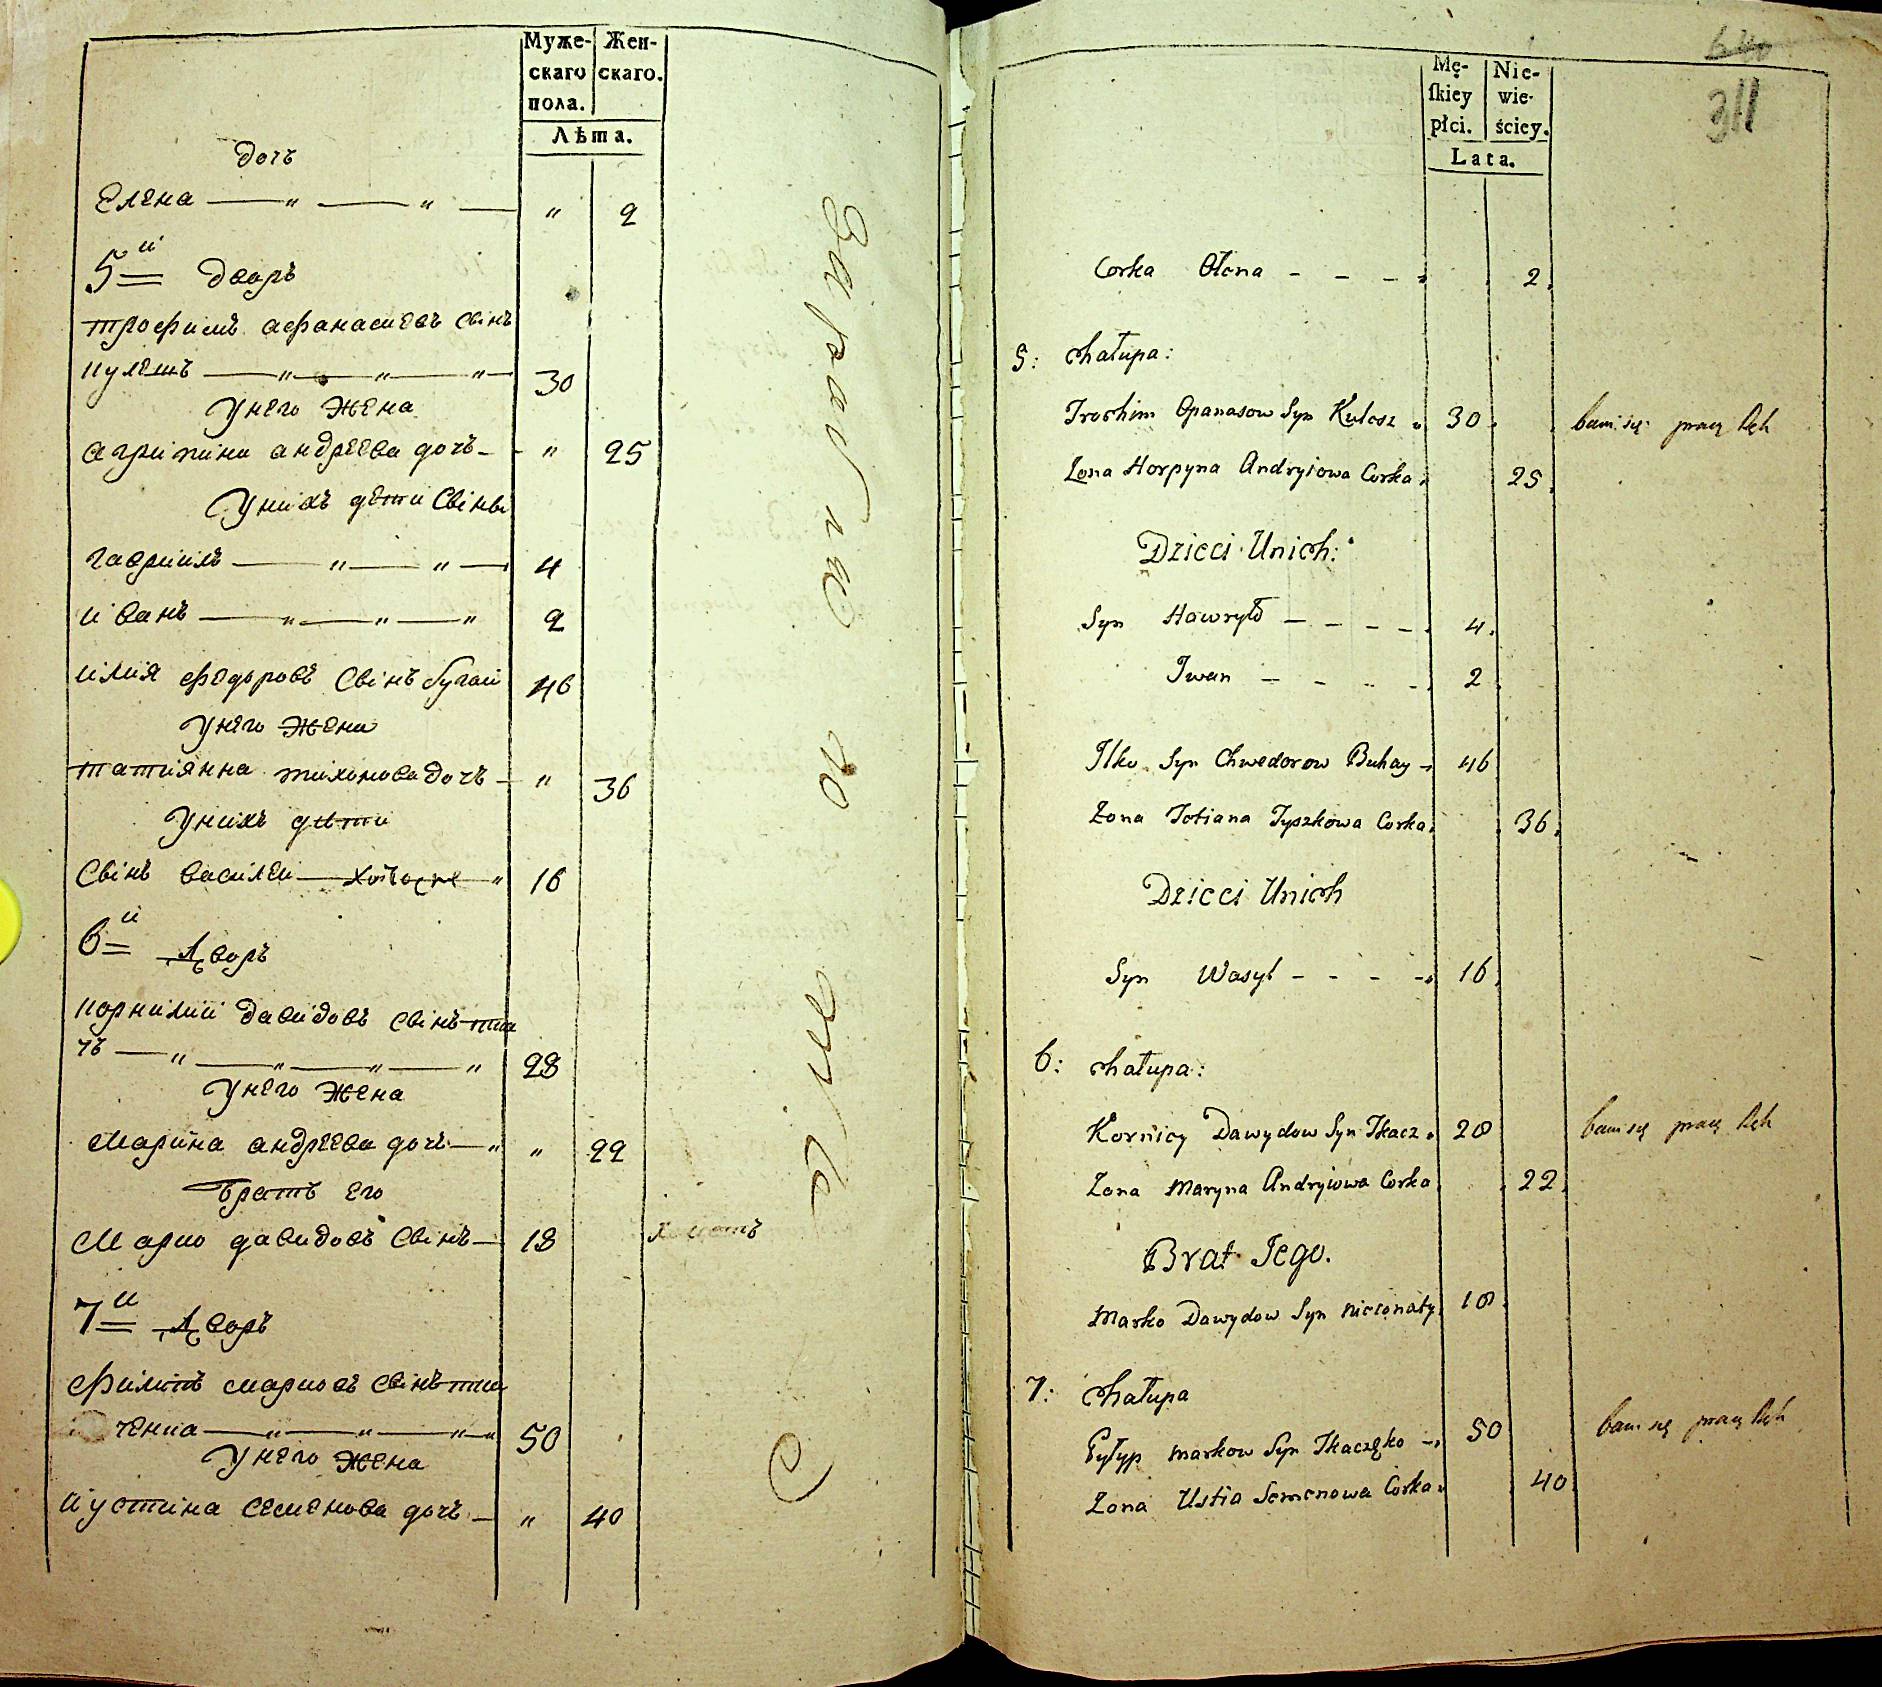 Муже- Жен-
скаго скаго.
пола.
Лѣта.
дочь
Елена — " — " — " 2
5й дворъ
трофимъ афанасиевъ свінъ
кулешъ — " — " — " 30
У него жена
агрипина андреева дочь — " 25
У нихъ дети свіны
гавриилъ — " — " — 4
иванъ — " — " — " 2
илия федоровъ свінъ бугай 46
У него жена
татиянна тихонова дочь — " 36
У нихъ дѣти
Свінъ василеи — " 16
6й дворъ
корнилии давидовъ свінъ тка
чъ — " — " — " — " 28
У него жена
марина андреева дочь — " " 22
братъ его
Марко давидовъ свінъ — 18 холостъ
7й дворъ
филипъ марковъ свінъ тка
ченка — " — " — " 50
У него жена
иустина семенова дочь — " 40
311
Mę- Nie-
skiey wie-
płci. ściey.
Lata.
Corka Ołena - - - 2.
5: chałupa:
Trochim Opanasow Syn Kulesz 30. bawi się pracą Rąk
Zona Horpyna Andryiowa Corka 25.
Dzieci Unich:
Syn Hawryło - - - - 4.
Iwan - - - - 2.
Ilko Syn Chwedorow Buhay - 46
Zona Tatiana Tyszkowa Corka. 36.
Dzieci Unich
Syn Wasyl - - - - 16.
6: chałupa:
Korniey Dawydow Syn Tkacz 28 bawi się pracą Rąk
Zona Maryna Andryiowa Corka 22.
Brat Jego.
Marko Dawydow Syn nieżonaty. 18.
7: chałupa
Pyłyp markow Syn Tkaczęko - 50 bawi się pracą Rąk
Zona Ustia Semenowa Corka. 40.